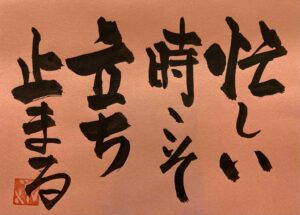 忙しい
時こそ
立ち
止まる